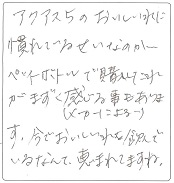 アクアス5のおいしい水に
慣れているせいなのか
ペットボトルで購入したお水
がまずく感じる事もありま
(メーカーによる)
す。今でおいしいお水を飲んで
いるなんて、恵まれてますね。